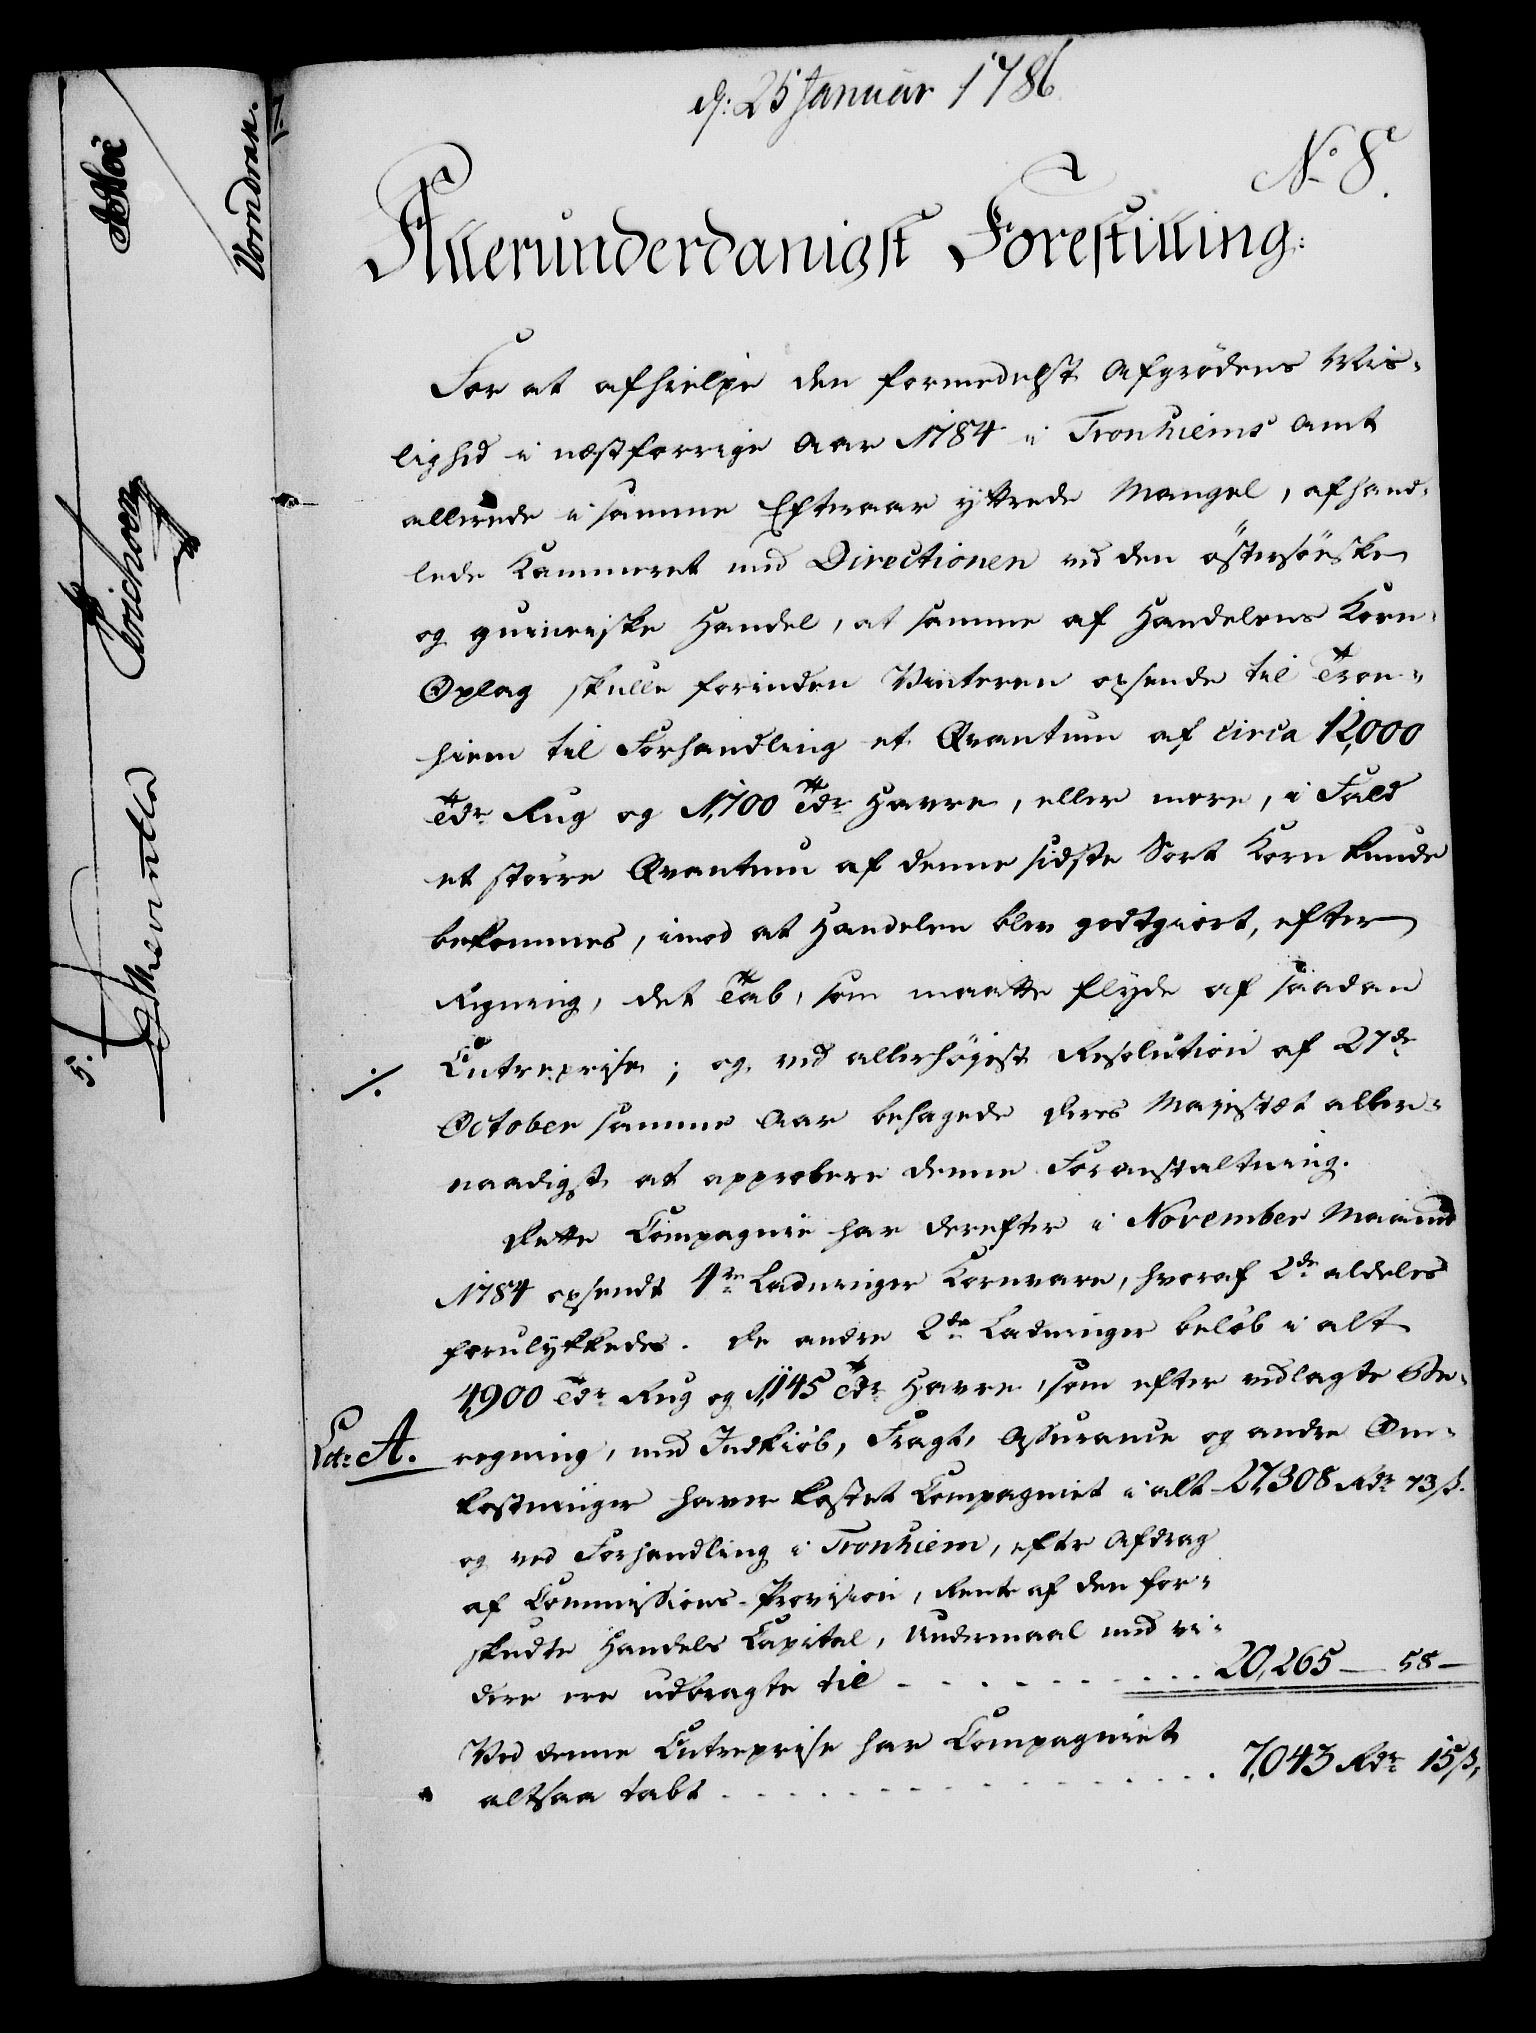 d: 25 Januar 1786
No 8.
Allerunderdanigst Forestilling:
For at afhielpe den formedelst Afgrødens Mis-
lighed i næstforrige Aar 1784 i Tronhiems Amt
allerede i samme Efteraar yttrede Mangel, afhand-
lede Kammeret med Directionen ved den östersöeske
og guineiske Handel, at samme af Handelens Korn-
Oplag skulle forinden Vinteren opsende til Tron-
hiem til Forhandling et Qvantum af circa 12,000
Tdr Rug og 1,700 Tdr Havre, eller mere, i Fald
et større Qvantum af denne sidste Sort Korn kunde
bekommes, imod at Handelen blev godtgiort, efter
Regning, det Tab, som maatte flyde af saadan
Entreprise; og ved allerhøjest Resolution af 27de
October samme Aar behagede Deres Majestæt aller-
naadigst at approbere denne Foranstaltning.
Dette Compagnie har derefter i November Maaned
1784 opsendt 4re Ladninger Kornvare, hvoraf 2de aldeles
forulykkedes. De andre 2de Ladninger beløb i alt
4,900 Tdr Rug og 1,145 Tdr Havre, som efter vedlagte Be-
Ltr: A.
regning, med Indkiöb, Fragt, Assurance og andre Om-
kostninger haver kostet Compagniet i alt 27,308 Rdr 73 ß.
og ved Forhandling i Tronhiem, efter Afdrag
af Commissions-Provision, Rente af den for-
skudte Handels Capital, Undermaal med vi-
dere ere udbragte til - - - - - - - 20,265 — 58 —
Ved denne Entreprise har Compagniet
altsaa tabt - - - - - - - 7,043 Rdr 15 ß,